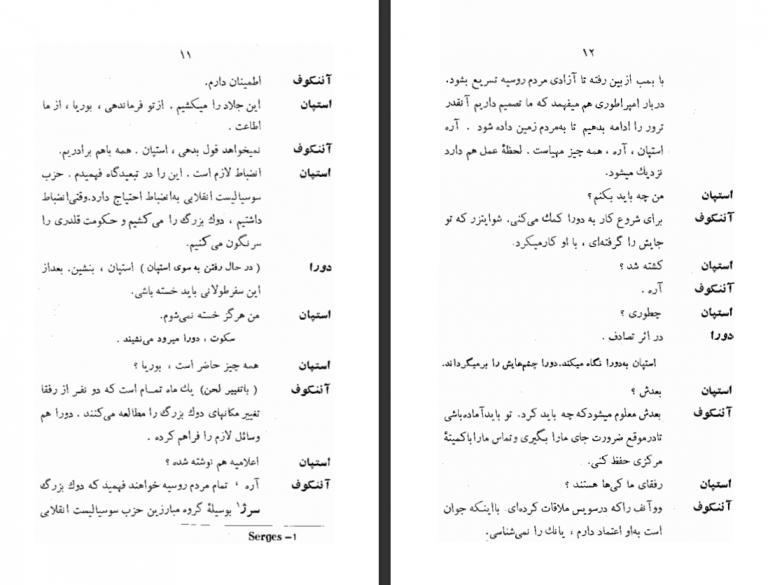 ۱۱
آننکوف اطمینان دارم.
استپان این جلاد را میکشیم . ازتو فرماندهی ، بوریا ، از ما
اطاعت .
آننکوف نمیخواهد قول بدهی ، استپان . همه باهم برادریم.
استپان انضباط لازم است . این را در تبعیدگاه فهمیدم . حزب
سوسیالیست انقلابی به‌انضباط احتیاج دارد.وقتی‌انضباط
داشتیم ، دوك بزرگ را می‌کشیم و حکومت قلدری را
سرنگون می‌کنیم.
دورا ( در حال رفتن به سوی استپان ) استپان ، بنشین. بعداز
این سفرطولانی باید خسته باشی.
استپان من هرگز خسته نمی‌شوم.
سکوت ، دورا میرود می‌نشیند .
استپان همه چیز حاضر است ، بوریا ؟
آننکوف ( باتغییر لحن) یك ماه تمام است که دو نفر از رفقا
تغییر مکانهای دوك بزرگ را مطالعه می‌کنند . دورا هم
وسائل لازم را فراهم کرده .
استپان اعلامیه هم نوشته شده ؟
آننکوف آره ، تمام مردم روسیه خواهند فهمید که دوك بزرگ
سرژ۱ بوسیلهٔ گروه مبارزین حزب سوسیالیست انقلابی
Serges –۱
۱۲
با بمب ازبین رفته تا آزادی مردم روسیه تسریع بشود.
دربار امپراطوری هم میفهمد که ما تصمیم داریم آنقدر
ترور را ادامه بدهیم تا به‌مردم زمین داده شود . آره
استپان ، آره ، همه چیز مهیاست . لحظهٔ عمل هم دارد
نزدیك میشود.
استپان من چه باید بکنم؟
آننکوف برای شروع کار به دورا کمك می‌کنی. شوایتزر که تو
جایش را گرفته‌ای ، با او کارمیکرد.
استپان کشته شد ؟
آننکوف آره .
استپان چطوری ؟
دورا در اثر تصادف .
استپان به‌دورا نگاه میکند. دورا چشم‌هایش را برمیگرداند.
استپان بعدش ؟
آننکوف بعدش معلوم میشودکه چه باید کرد. تو بایدآماده‌باشی
تادرموقع ضرورت جای مارا بگیری وتماس ماراباکمیتهٔ
مرکزی حفظ کنی.
استپان رفقای ما کی‌ها هستند ؟
آننکوف ووآنف راکه درسویس ملاقات کرده‌ای . بااینکه جوان
است به‌او اعتماد دارم ، یانك را نمی‌شناسی.